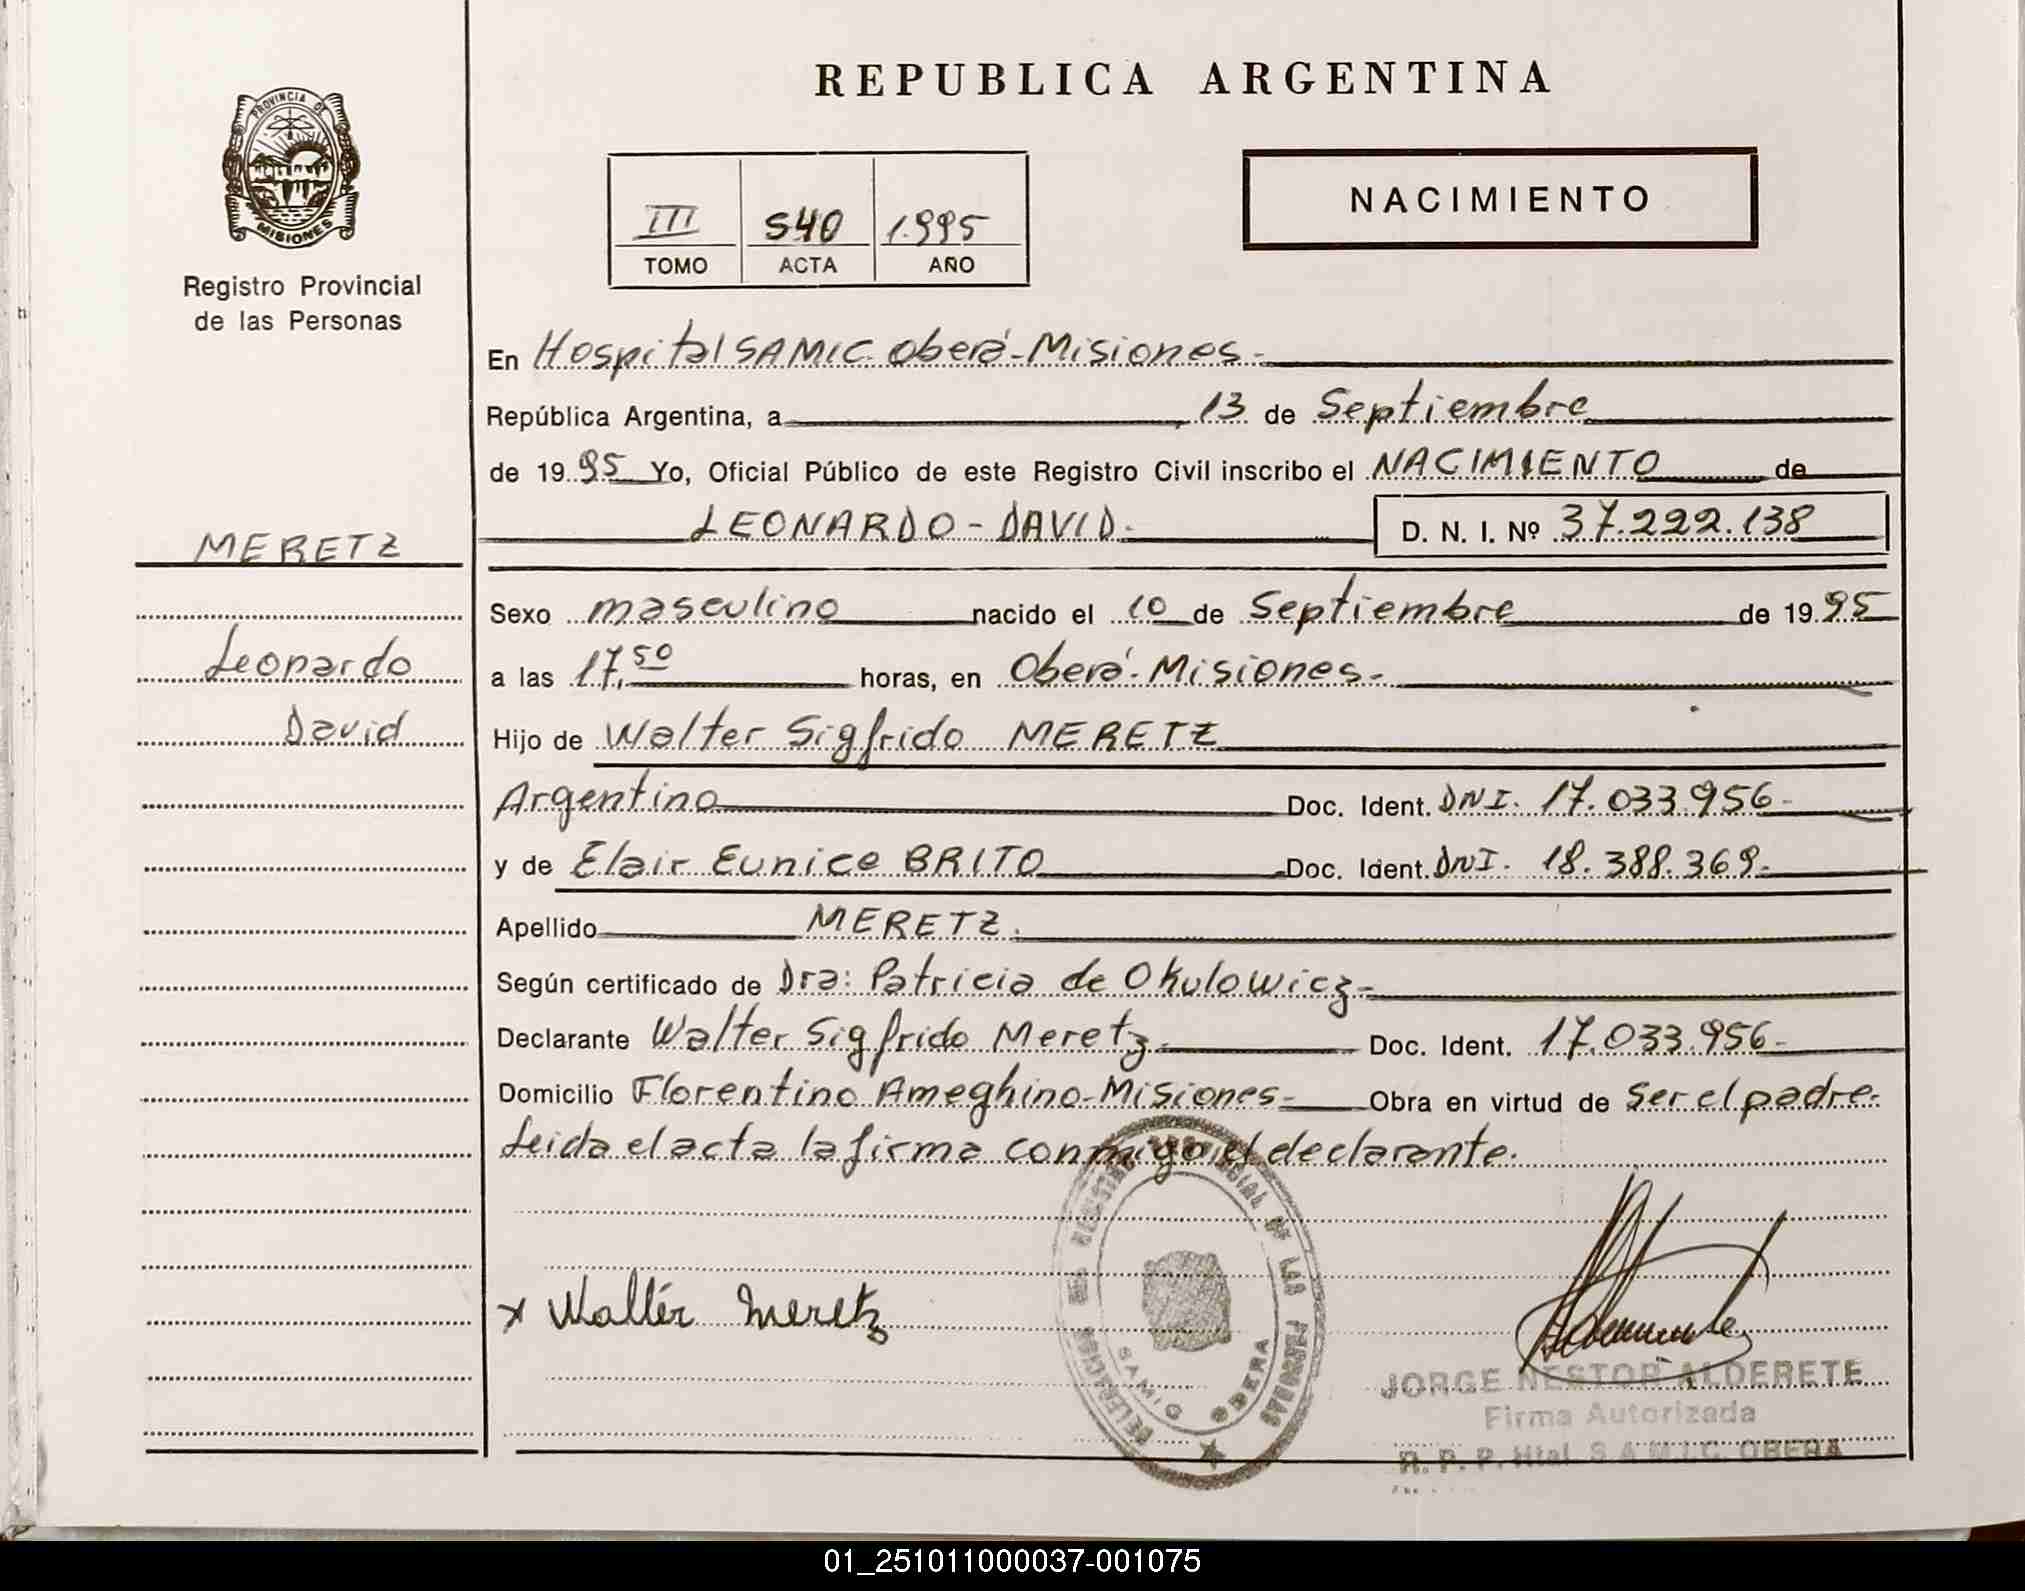 REPUBLICA ARGENTINA
PROVINCIA DE
MISIONES
Registro Provincial
de las Personas
III 540 1.995
TOMO ACTA AÑO
NACIMIENTO
En Hospital SAMIC. Oberá-Misiones.-
República Argentina, a 13 de Septiembre
de 19 95 Yo, Oficial Público de este Registro Civil inscribo el NACIMIENTO de
LEONARDO-DAVID.- D. N. I. Nº 37.222.138
MERETZ
Leonardo
David
Sexo masculino nacido el 10 de Septiembre de 19 95
a las 17,50 horas, en Oberá-Misiones.-
Hijo de Walter Sigfrido MERETZ
Argentino Doc. Ident. DNI. 17.033.956-
y de Elair Eunice BRITO Doc. Ident. DNI. 18.388.369.-
Apellido MERETZ.
Según certificado de Dra: Patricia de Okulowicz-
Declarante Walter Sigfrido Meretz.- Doc. Ident. 17.033.956-
Domicilio Florentino Ameghino-Misiones- Obra en virtud de ser el padre.
Leida el acta la firma conmigo el declarante.
x Walter Meretz
DELEGACION REGISTRO PROVINCIAL DE LAS PERSONAS
SAMIC OBERA
JORGE NESTOR ALDERETE
Firma Autorizada
R. P. P. Htal. S.A.M.I.C. OBERA
01_251011000037-001075